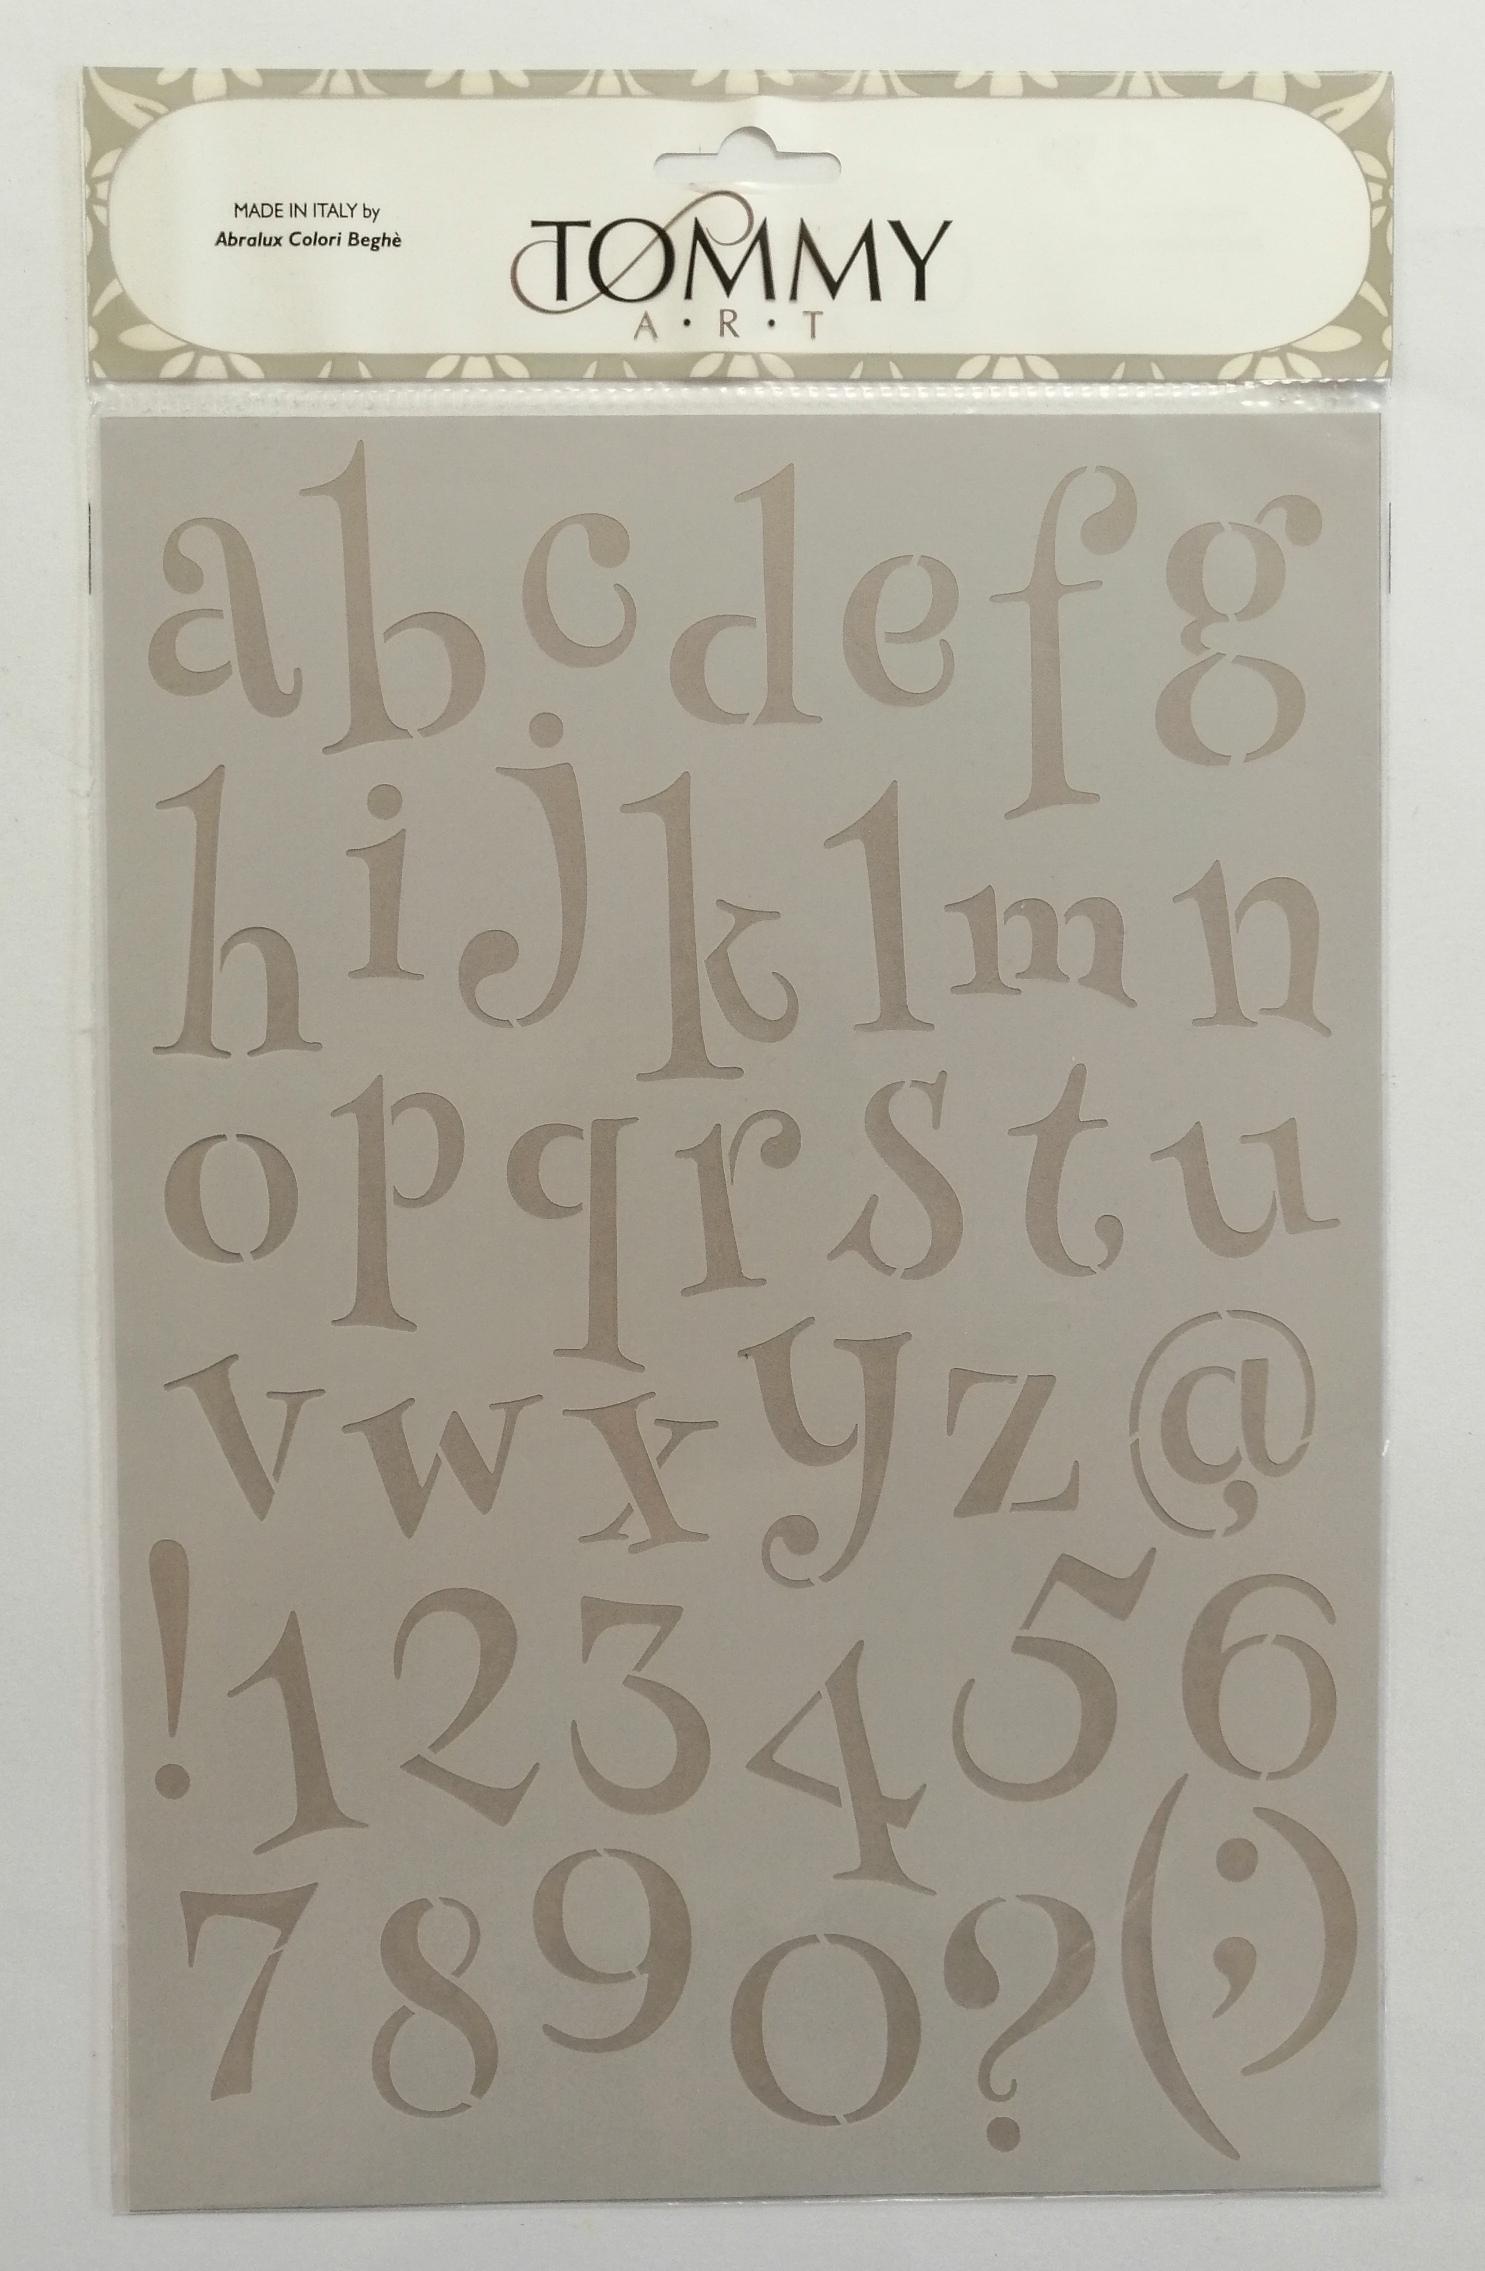 MADE IN ITALY by
Abralux Colori Beghè
TOMMY
A·R·T
a b c d e f g
h i j k l m n
o p q r s t u
v w x y z @
! 1 2 3 4 5 6
7 8 9 0 ? ( ; )